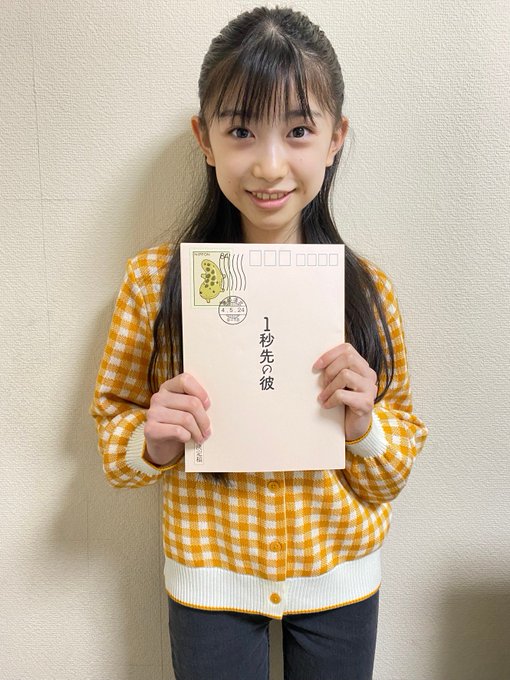 NIPPON
4.5.24
1秒先の彼